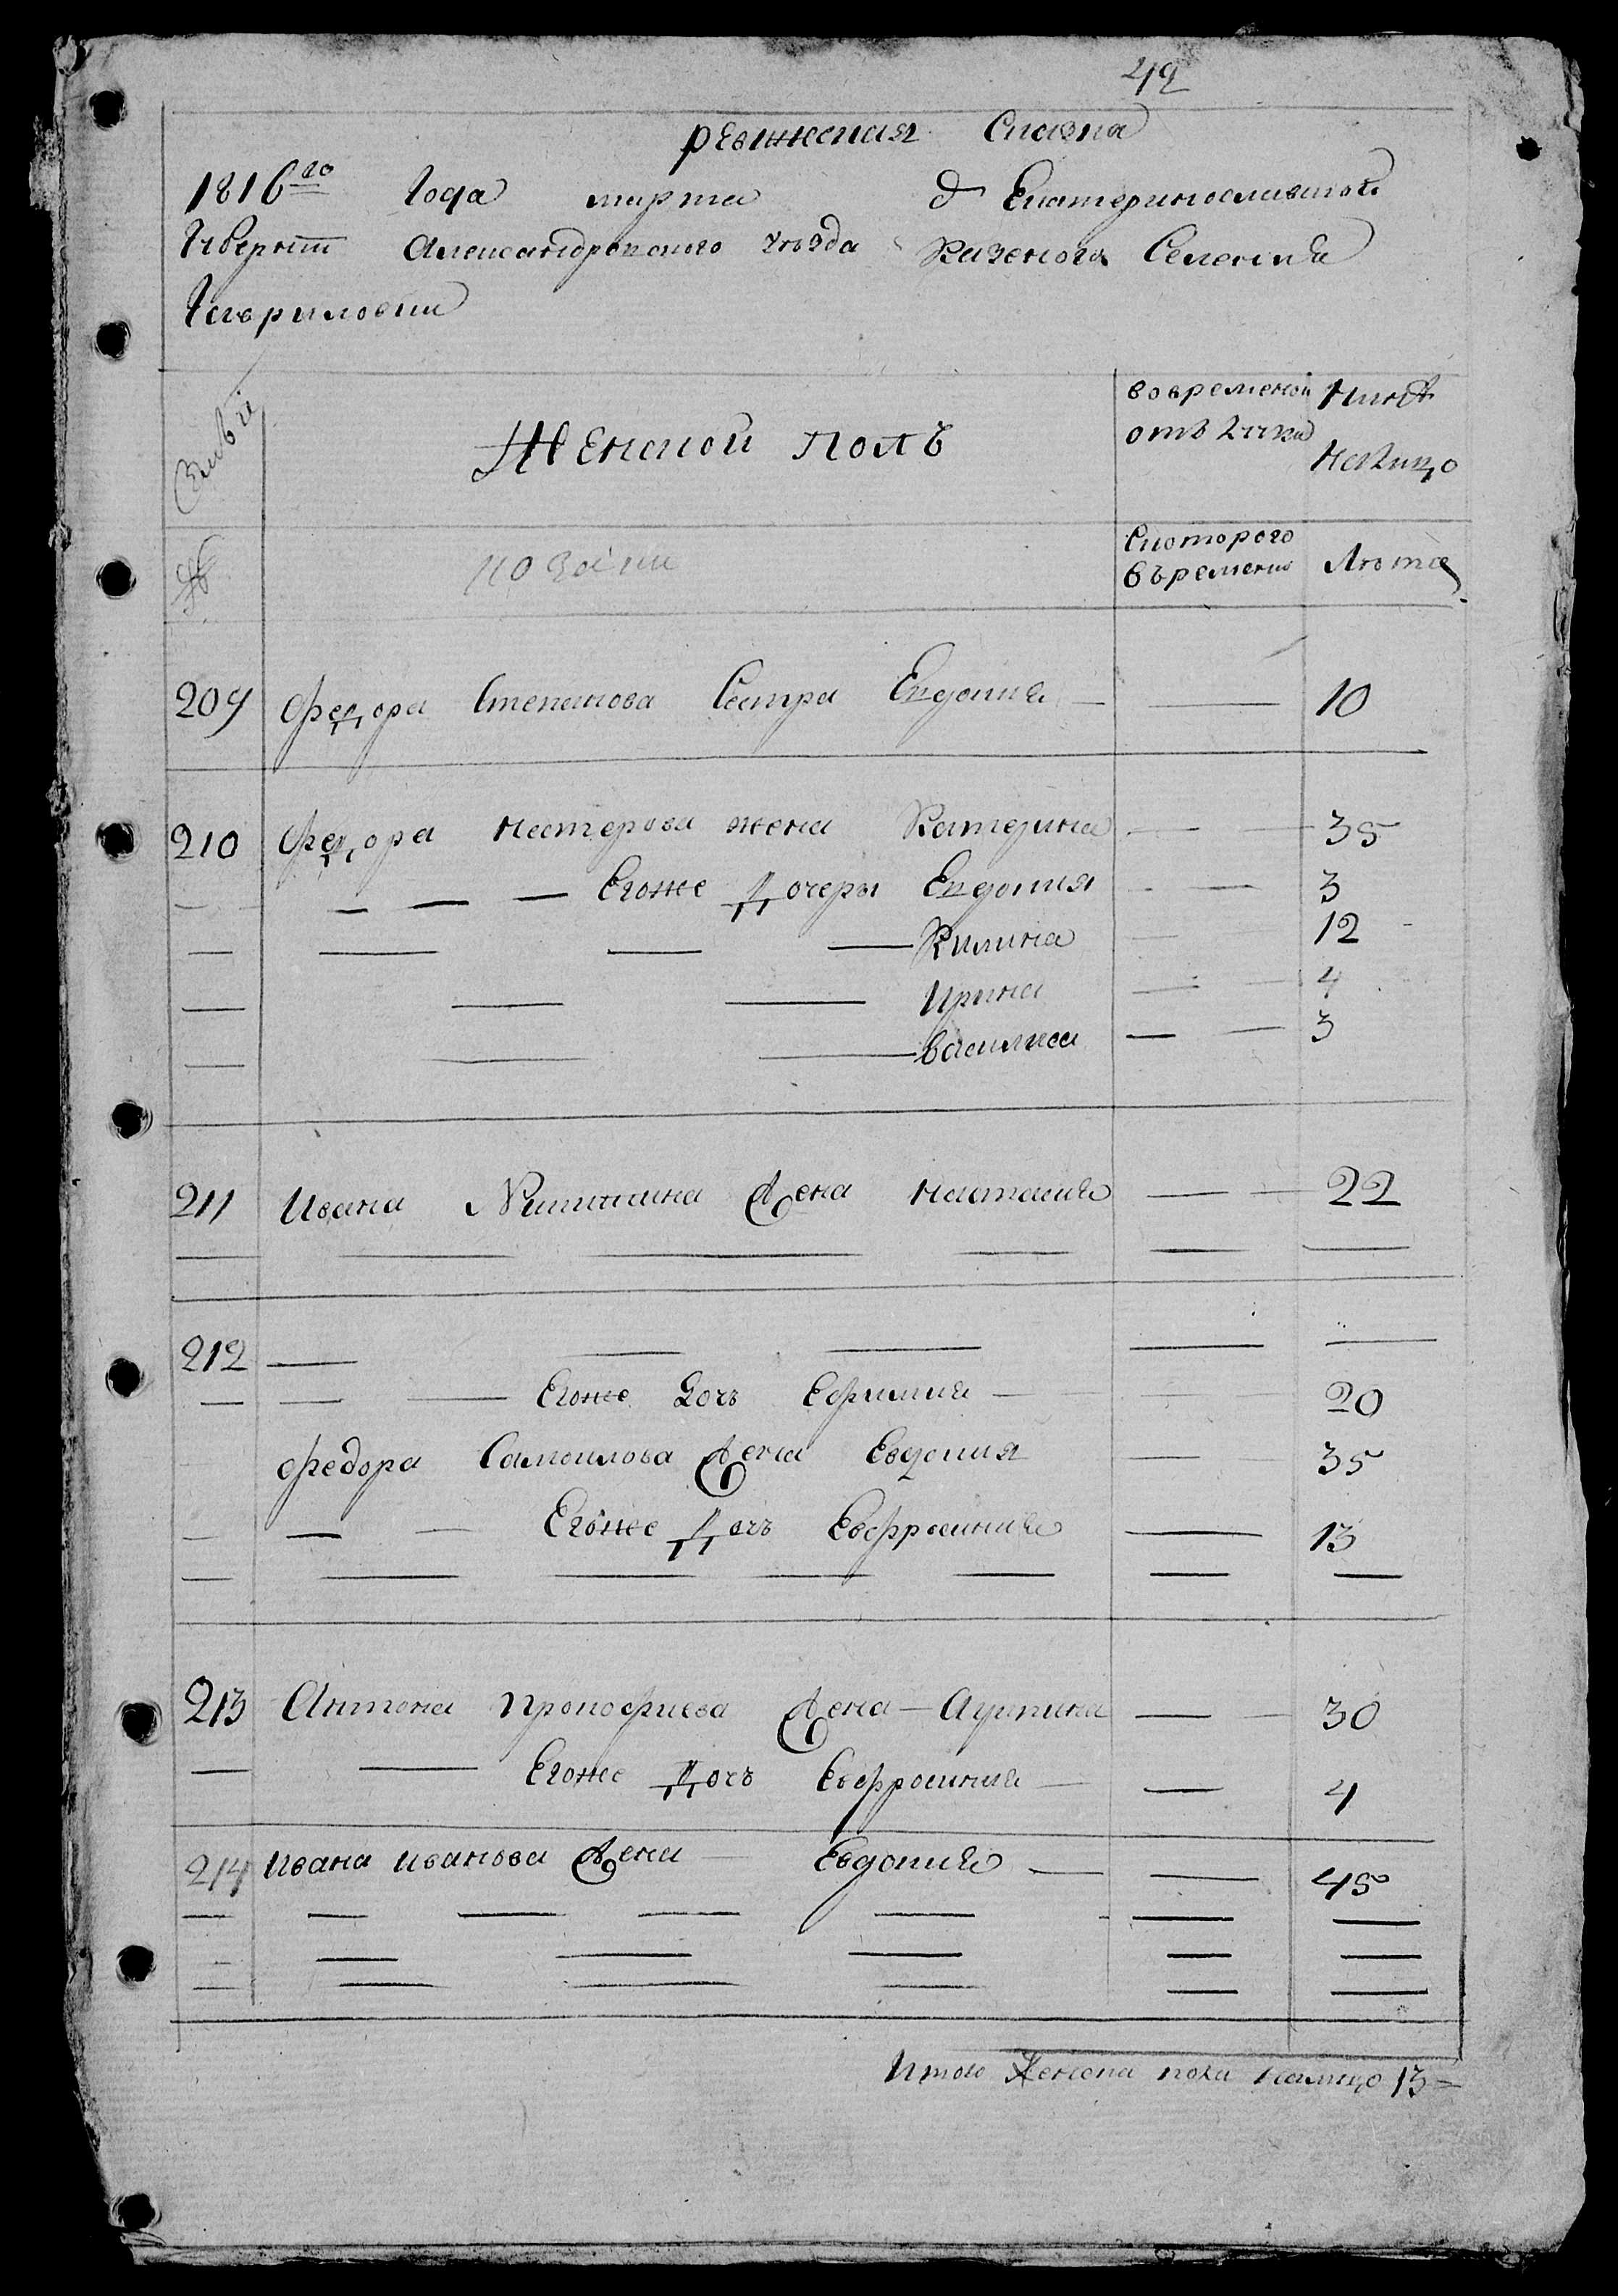 42
ревижская Сказка
1816го Года марта д Екатеринославской
Губернии Александровского уезда Казеного Селения
Гавриловки
Женской полъ
вовременой
отъ Лучка
Ныне
Налицо
Скоторого
Въремени
Лета
209 Федора Степанова Сестра Евдокия — 10
210 Федора Нестерова жена Катерина — 35
Егоже Дочеры Евдокия — 3
Килина — 12
Ирина — 4
Василиса — 3
211 Ивана Никитина Жена Настасия — 22
212
Егоже Дочъ Ефимия — 20
Федора Самоилова Жена Евдокия — 35
Егоже Дочъ Евфросиния — 13
213 Антона Прокофиева Жена — Агрипина — 30
Егоже Дочъ Евфросиния — 4
214 Ивана Иванова Жена — Евдокия — 45
Итого Женска пола налицо 13